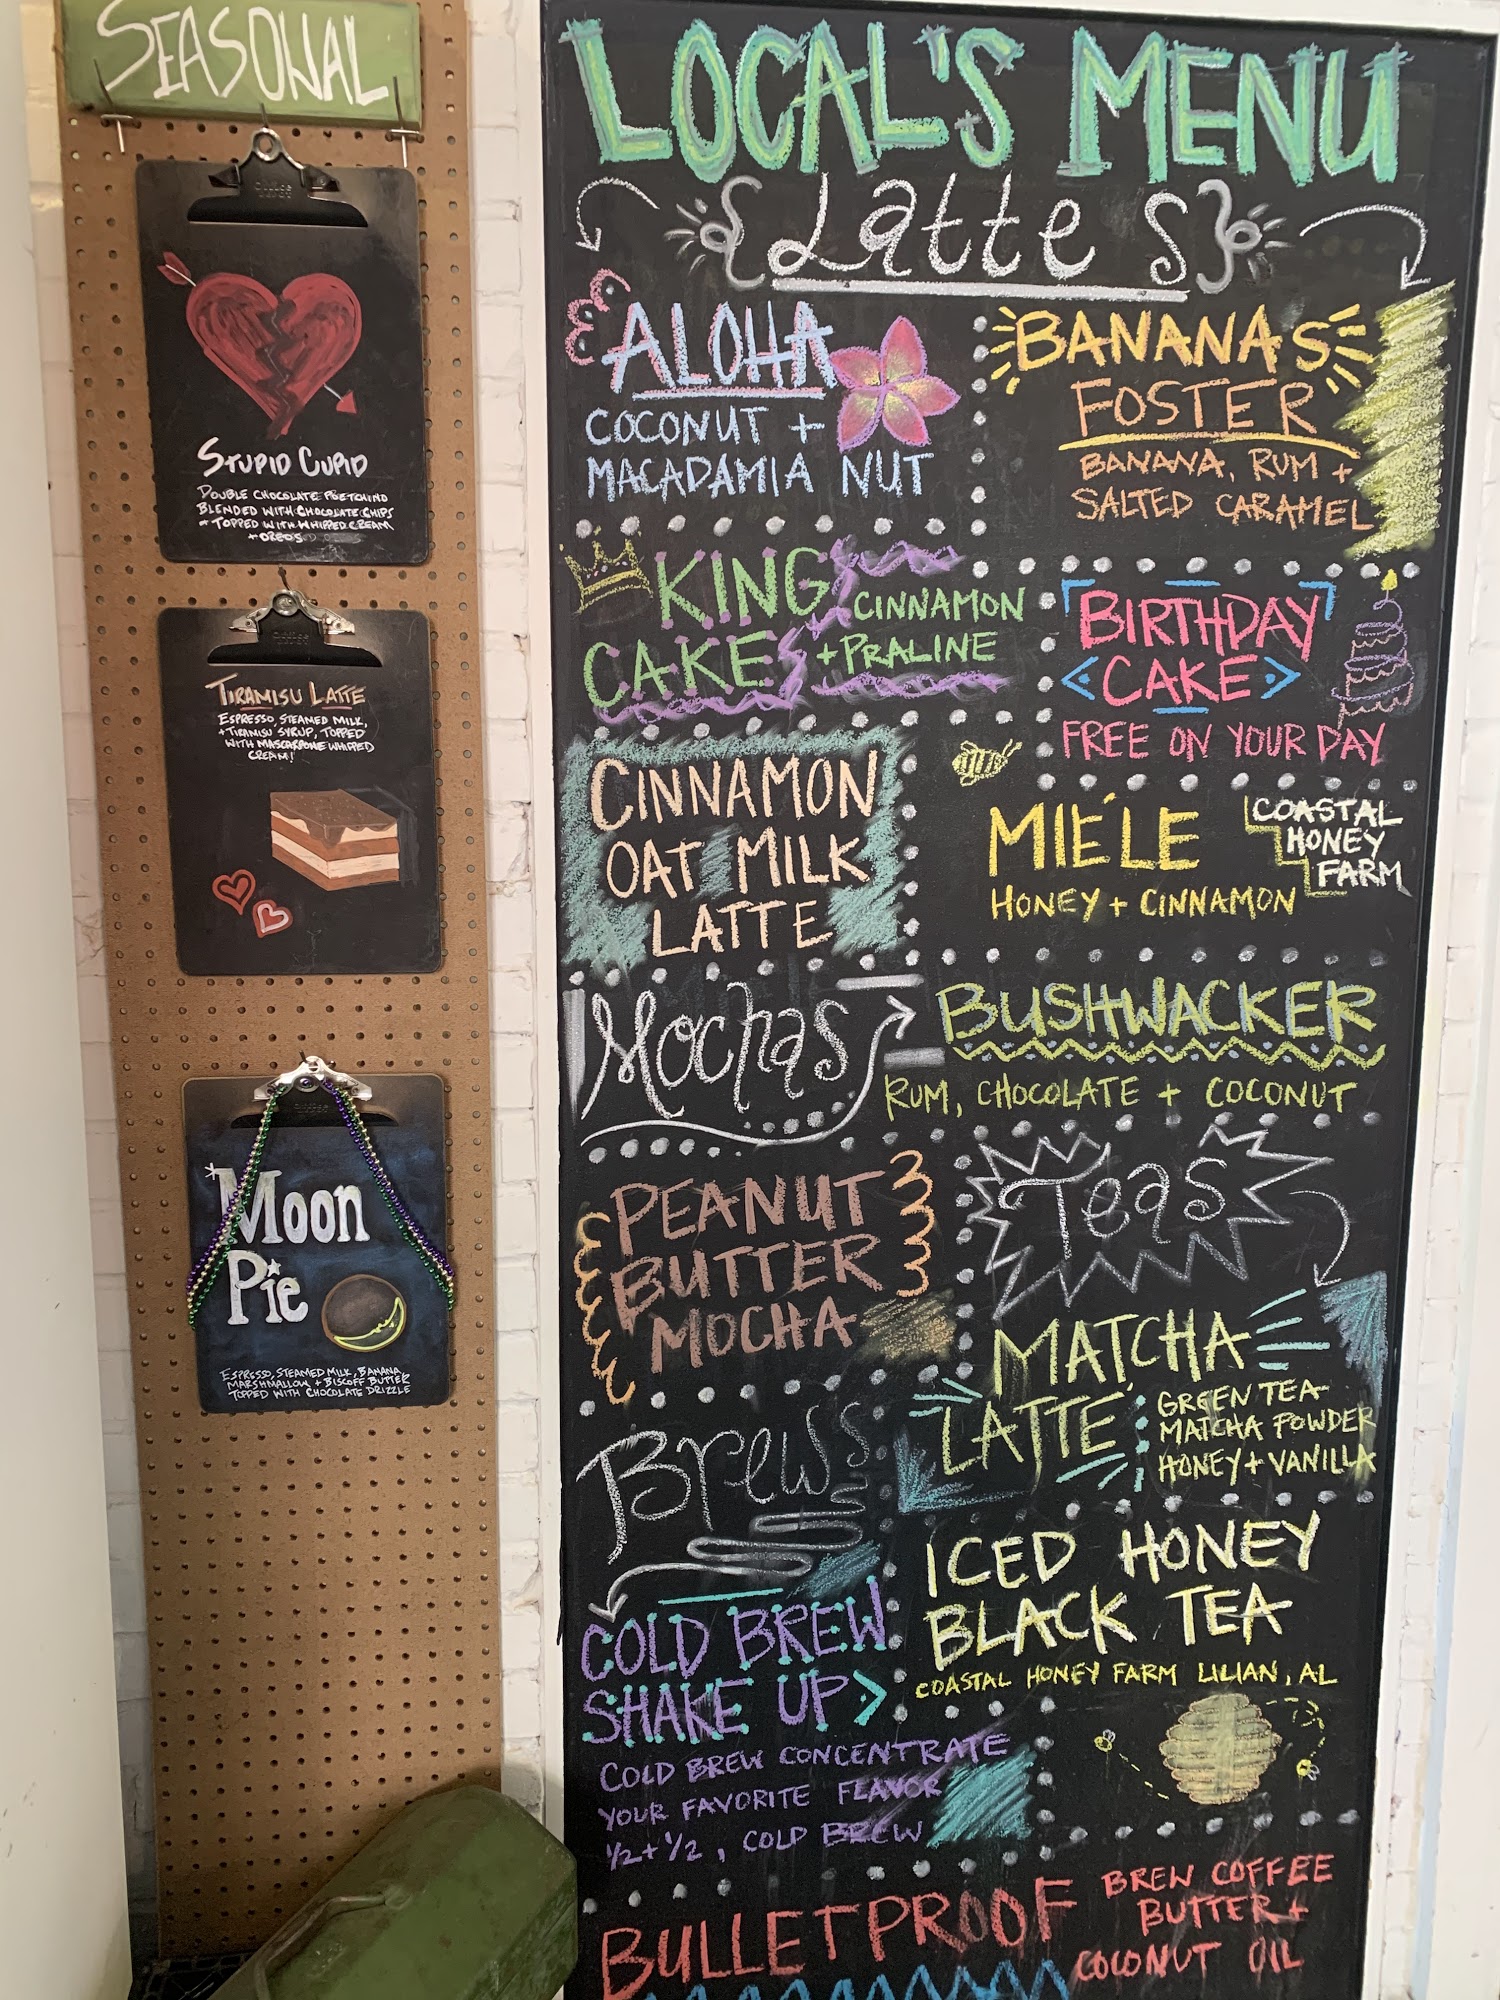 SEASONAL
STUPID CUPID
DOUBLE CHOCOLATE
BLENDED WITH CHOCOLATE CHIPS
+ TOPPED WITH WHIPPED CREAM
+ OREOS
TIRAMISU LATTE
ESPRESSO, STEAMED MILK,
+ TIRAMISU SYRUP, TOPPED
WITH MASCARPONE WHIPPED
CREAM!
MOON
PIE
ESPRESSO, STEAMED MILK, BANANA,
MARSHMALLOW + BISCOFF BUTTER
TOPPED WITH CHOCOLATE DRIZZLE
LOCAL'S MENU
Lattes
ALOHA
COCONUT +
MACADAMIA NUT
BANANAS
FOSTER
BANANA, RUM +
SALTED CARAMEL
KING
CAKE
CINNAMON
+ PRALINE
BIRTHDAY
CAKE
FREE ON YOUR DAY
CINNAMON
OAT MILK
LATTE
MIÉLE
HONEY + CINNAMON
COASTAL
HONEY
FARM
Mochas
BUSHWACKER
RUM, CHOCOLATE + COCONUT
PEANUT
BUTTER
MOCHA
Teas
MATCHA
LATTE
GREEN TEA
MATCHA POWDER
HONEY + VANILLA
Brews
ICED HONEY
BLACK TEA
COASTAL HONEY FARM LILIAN, AL
COLD BREW
SHAKE UP
COLD BREW CONCENTRATE
YOUR FAVORITE FLAVOR
1/2 + 1/2, COLD BREW
BULLETPROOF
BREW COFFEE
BUTTER +
COCONUT OIL